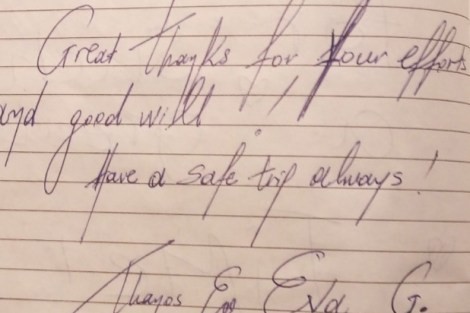 Great Thanks for Your efforts
and good will!
Have a safe trip always!
Thanos Eva G.